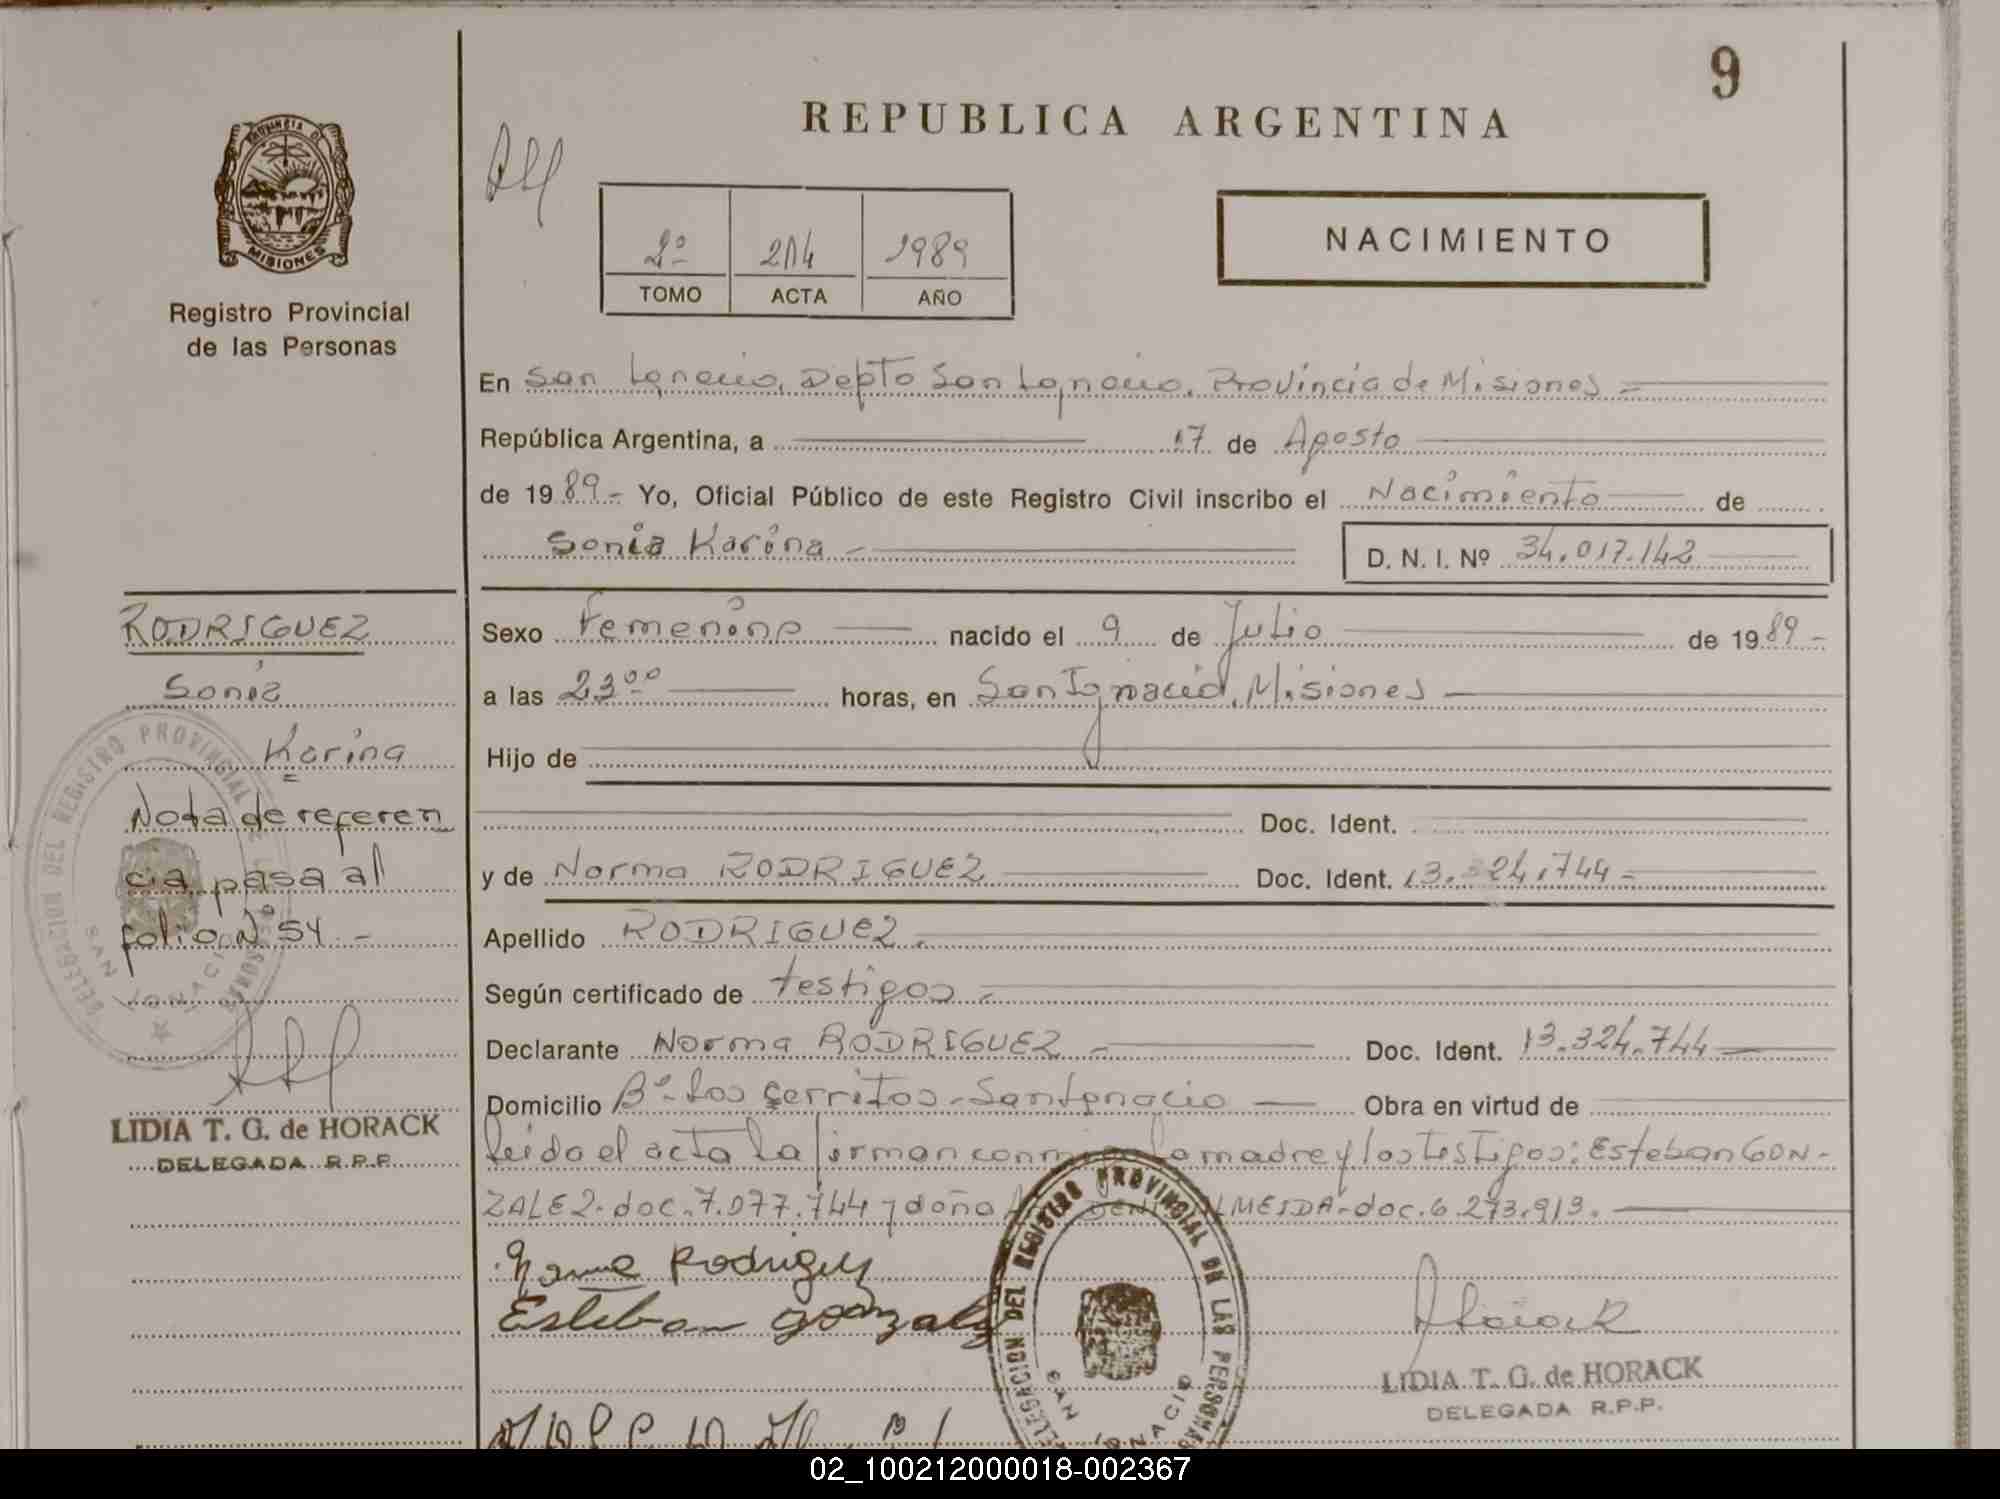 9
REPUBLICA ARGENTINA
PROVINCIA DE
MISIONES
Registro Provincial
de las Personas
2º 214 1989
TOMO ACTA AÑO
NACIMIENTO
En San Ignacio, Depto San Ignacio, Provincia de Misiones
República Argentina, a 17 de Agosto
de 1989.- Yo, Oficial Público de este Registro Civil inscribo el Nacimiento de
Sonia Karina
D. N. I. Nº 34.017.142
RODRIGUEZ
Sonia
Karina
Nota de referen
cia pasa al
folio Nº 54.-
LIDIA T. G. de HORACK
DELEGADA R.P.P.
Sexo Femenino nacido el 9 de Julio de 1989.-
a las 23⁰⁰ horas, en San Ignacio, Misiones
Hijo de
Doc. Ident.
y de Norma RODRIGUEZ Doc. Ident. 13.324.744-
Apellido RODRIGUEZ.
Según certificado de testigos.-
Declarante Norma RODRIGUEZ.- Doc. Ident. 13.324.744
Domicilio Bº Los Cerritos - San Ignacio Obra en virtud de
leido el acta la firman conmigo la madre y los testigos: Esteban GON-
ZALEZ-doc.7.077.744 y doña ALMEIDA-doc.6.273.913.
Norma Rodriguez
Esteban Gonzalez
DELEGACION DEL REGISTRO PROVINCIAL DE LAS PERSONAS
SAN IGNACIO
LIDIA T. G. de HORACK
DELEGADA R.P.P.
02_100212000018-002367